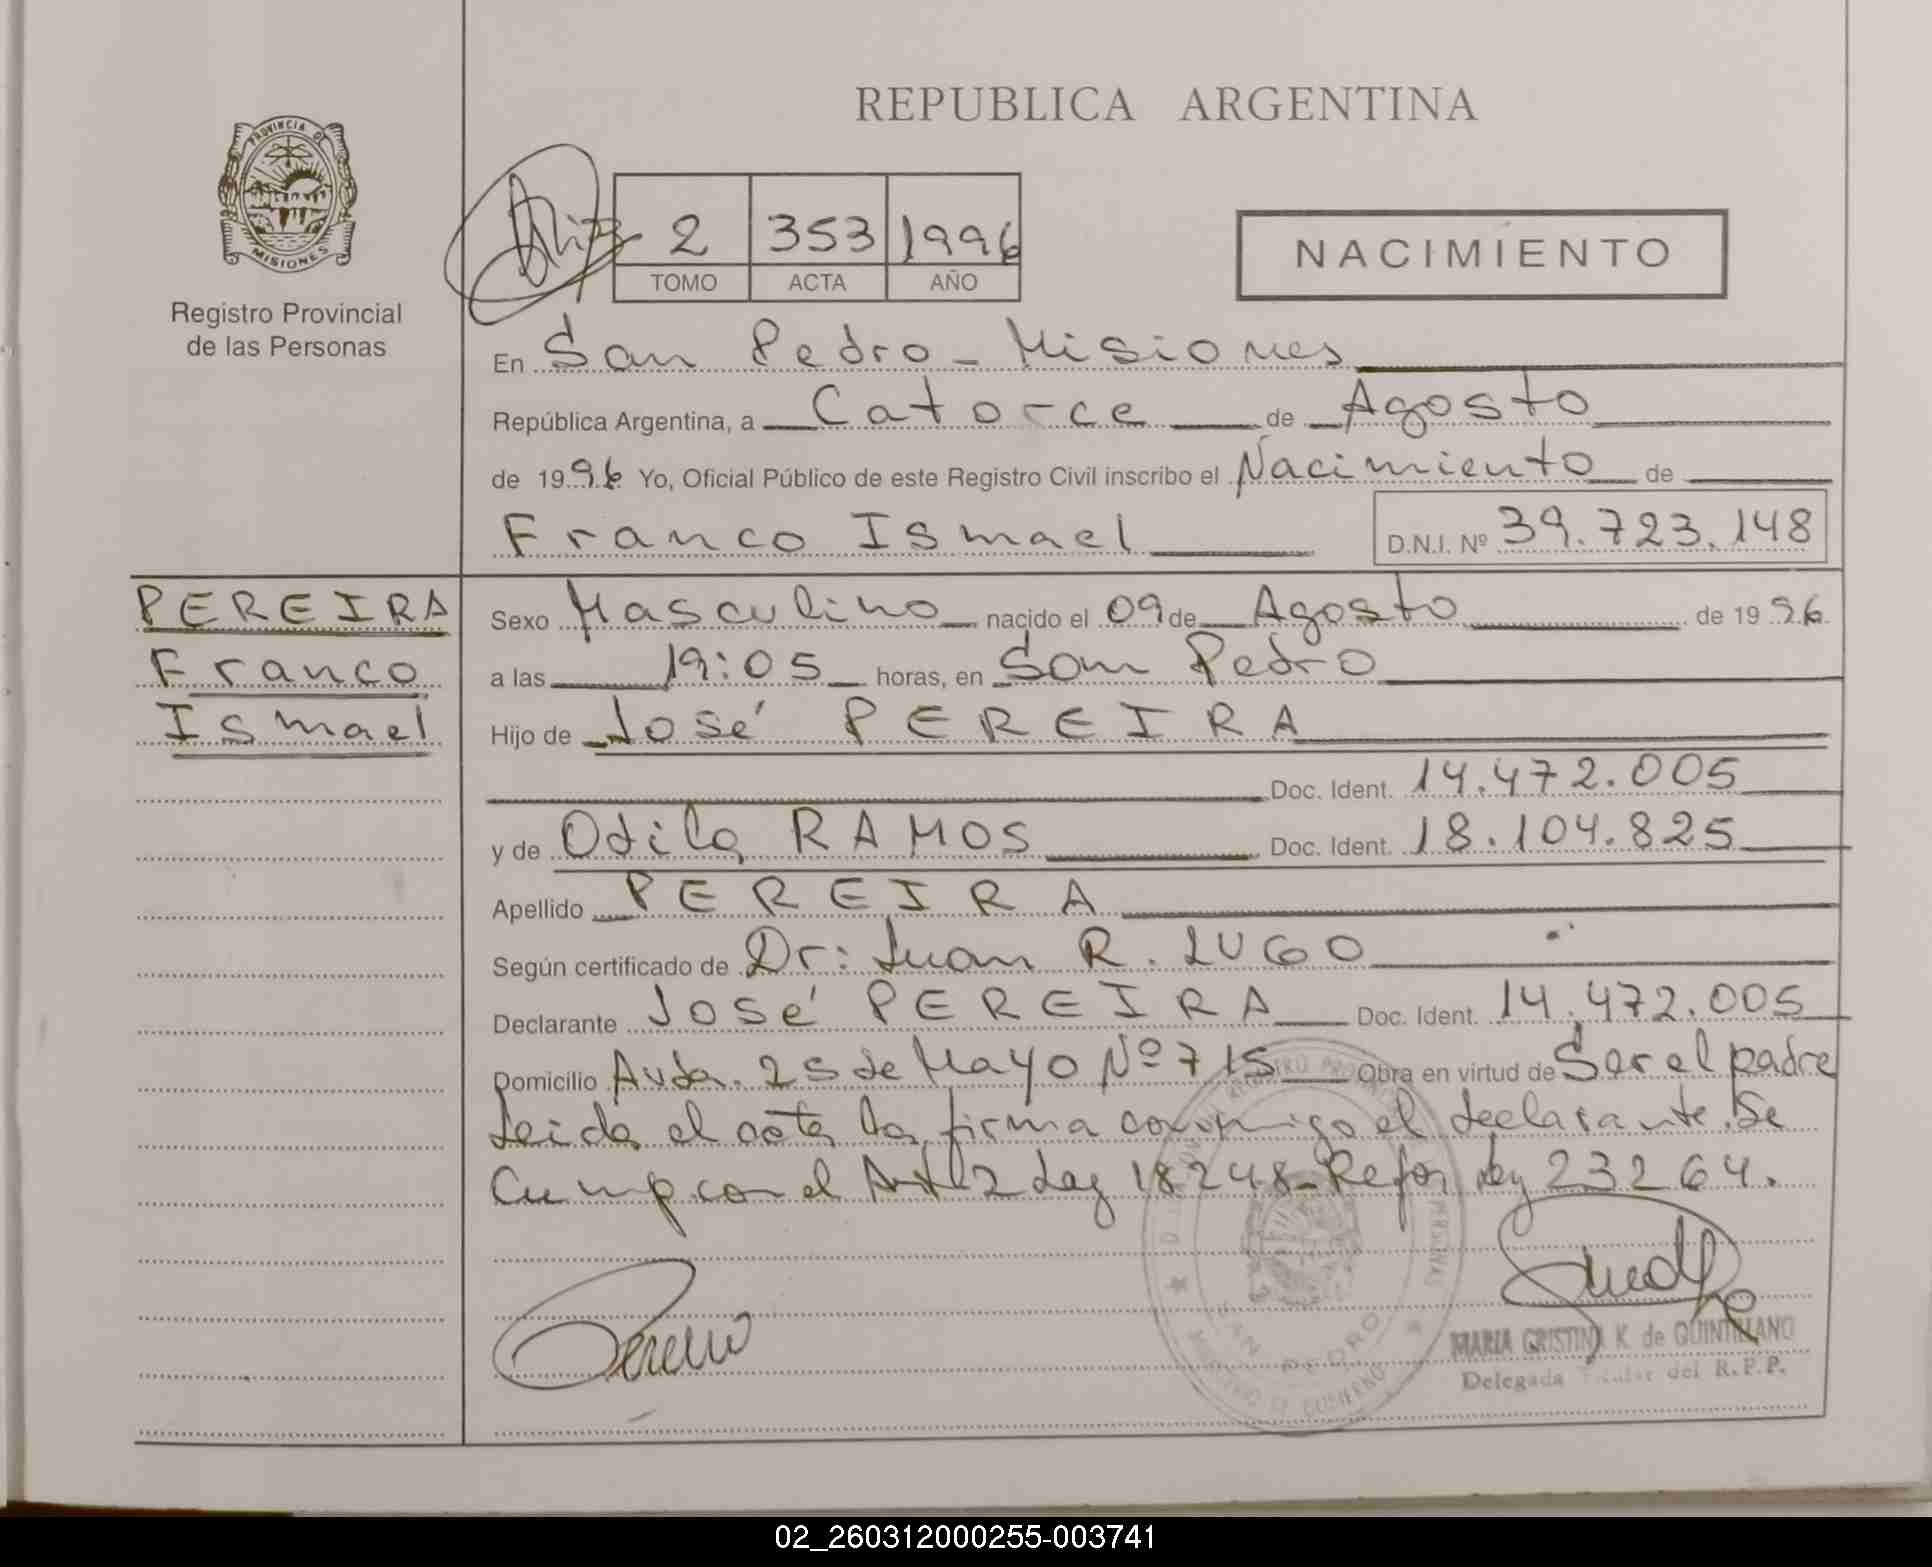 REPUBLICA ARGENTINA
PROVINCIA DE
MISIONES
Registro Provincial
de las Personas
2 353 1996
TOMO ACTA AÑO
NACIMIENTO
En San Pedro - Misiones
República Argentina, a Catorce de Agosto
de 1996 Yo, Oficial Público de este Registro Civil inscribo el Nacimiento de
Franco Ismael D.N.I. Nº 39.723.148
PEREIRA
Franco
Ismael
Sexo Masculino nacido el 09 de Agosto de 1996
a las 19:05 horas, en San Pedro
Hijo de José PEREIRA
Doc. Ident. 14.472.005
y de Odila RAMOS Doc. Ident. 18.104.825
Apellido PEREIRA
Según certificado de Dr: Juan R. LUGO
Declarante José PEREIRA Doc. Ident. 14.472.005
Domicilio Avda. 25 de Mayo Nº 715 Obra en virtud de Ser el padre
Leida el acta la firma conmigo el declarante. Se
Cump. con el Art 2 Ley 18248 - Refor. ley 23264.
SAN PEDRO
MINISTERIO DE GOBIERNO
MARIA CRISTINA K. de QUINTILIANO
Delegada Titular del R.P.P.
02_260312000255-003741